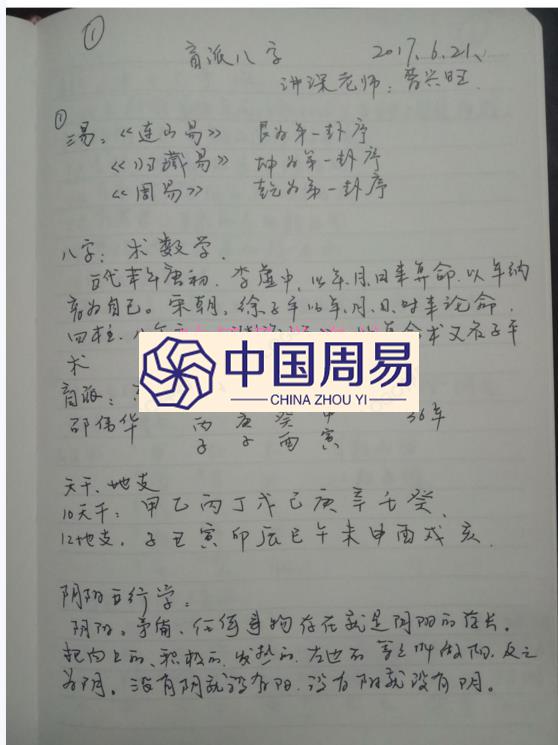 ①
盲派八字 2017.6.21、
讲课老师：晋兴旺
① 三易：《连山易》 艮为第一卦序
《归藏易》 坤为第一卦序
《周易》 乾为第一卦序
八字：术数学.
古代 唐初. 李虚中. 以年.月.日来算命. 以年纳
音为自己。宋朝. 徐子平以年.月.日.时来论命.
四柱. 八字 术又称子平
术
中国周易
CHINA ZHOU YI
盲派：
邵伟华 丙 庚 癸 甲 36年
子 子 酉 寅
天干、地支
10天干：甲乙丙丁戊己庚辛壬癸、
12地支. 子丑寅卯辰巳午未申酉戌亥.
阴阳五行学：
阴阳。矛盾、任何事物存在就是阴阳的存在.
把向上的、积极的、发热的、左边的 等之叫做阳. 反之
为阴。没有阴就没有阳. 没有阳就没有阴。